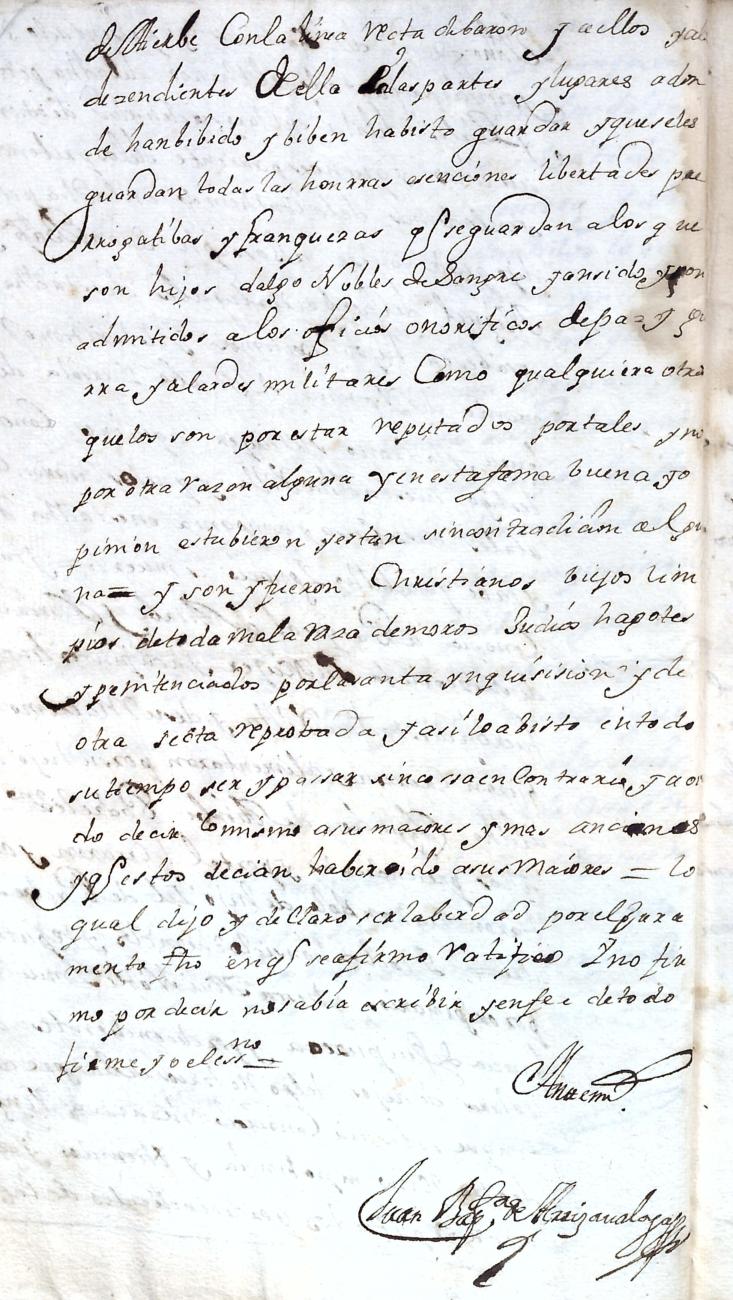 de Hierbe Con la linea recta de baron y a ellos y a los
dezendientes de ella en las partes y lugares adon
de han bibido y biben ha bisto guardar y que se les
guardan todas las honrras esenciones libertades pre
rrogatibas y franquezas q se guardan a los que
son hijos dalgo Nobles de Sangre y an sido y son
admitidos a los oficios onorificos de paz y gu
rra y alardes militares Como qualquiera otro
que los son por estar reputados por tales y no
por otra razon alguna y en esta fama buena y o
pinion estubieron y estan sin contradicion algu
na = y son y fueron Christianos biejos lim
pios de toda mala raza de moros Judios hagotes
y penitenciados por la santa ynquisision y de
otra secta reprobada y asi lo a bisto en todo
su tiempo ser y passar sin cossa en Contrario y a oi
do decir lo mismo a sus maiores y mas ancianos
y q estos decian haber oido a sus Maiores = lo
qual dijo y declaro ser la berdad por el Jura
mento fho en q se afirmo Ratifico I no fir
mo por decir no sabia escribir y en fee de todo
firme yo el ess.no =
Ante mi
Juan Bap.ta de Arrizavalaga